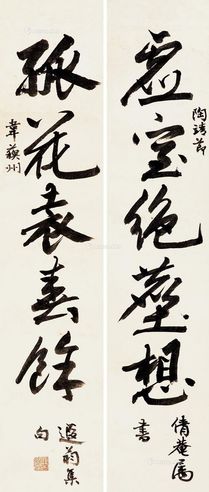 虛室絕塵想
陶靖節
倩菴属
書
孤花表春餘
韋蘇州
遐翁集
句